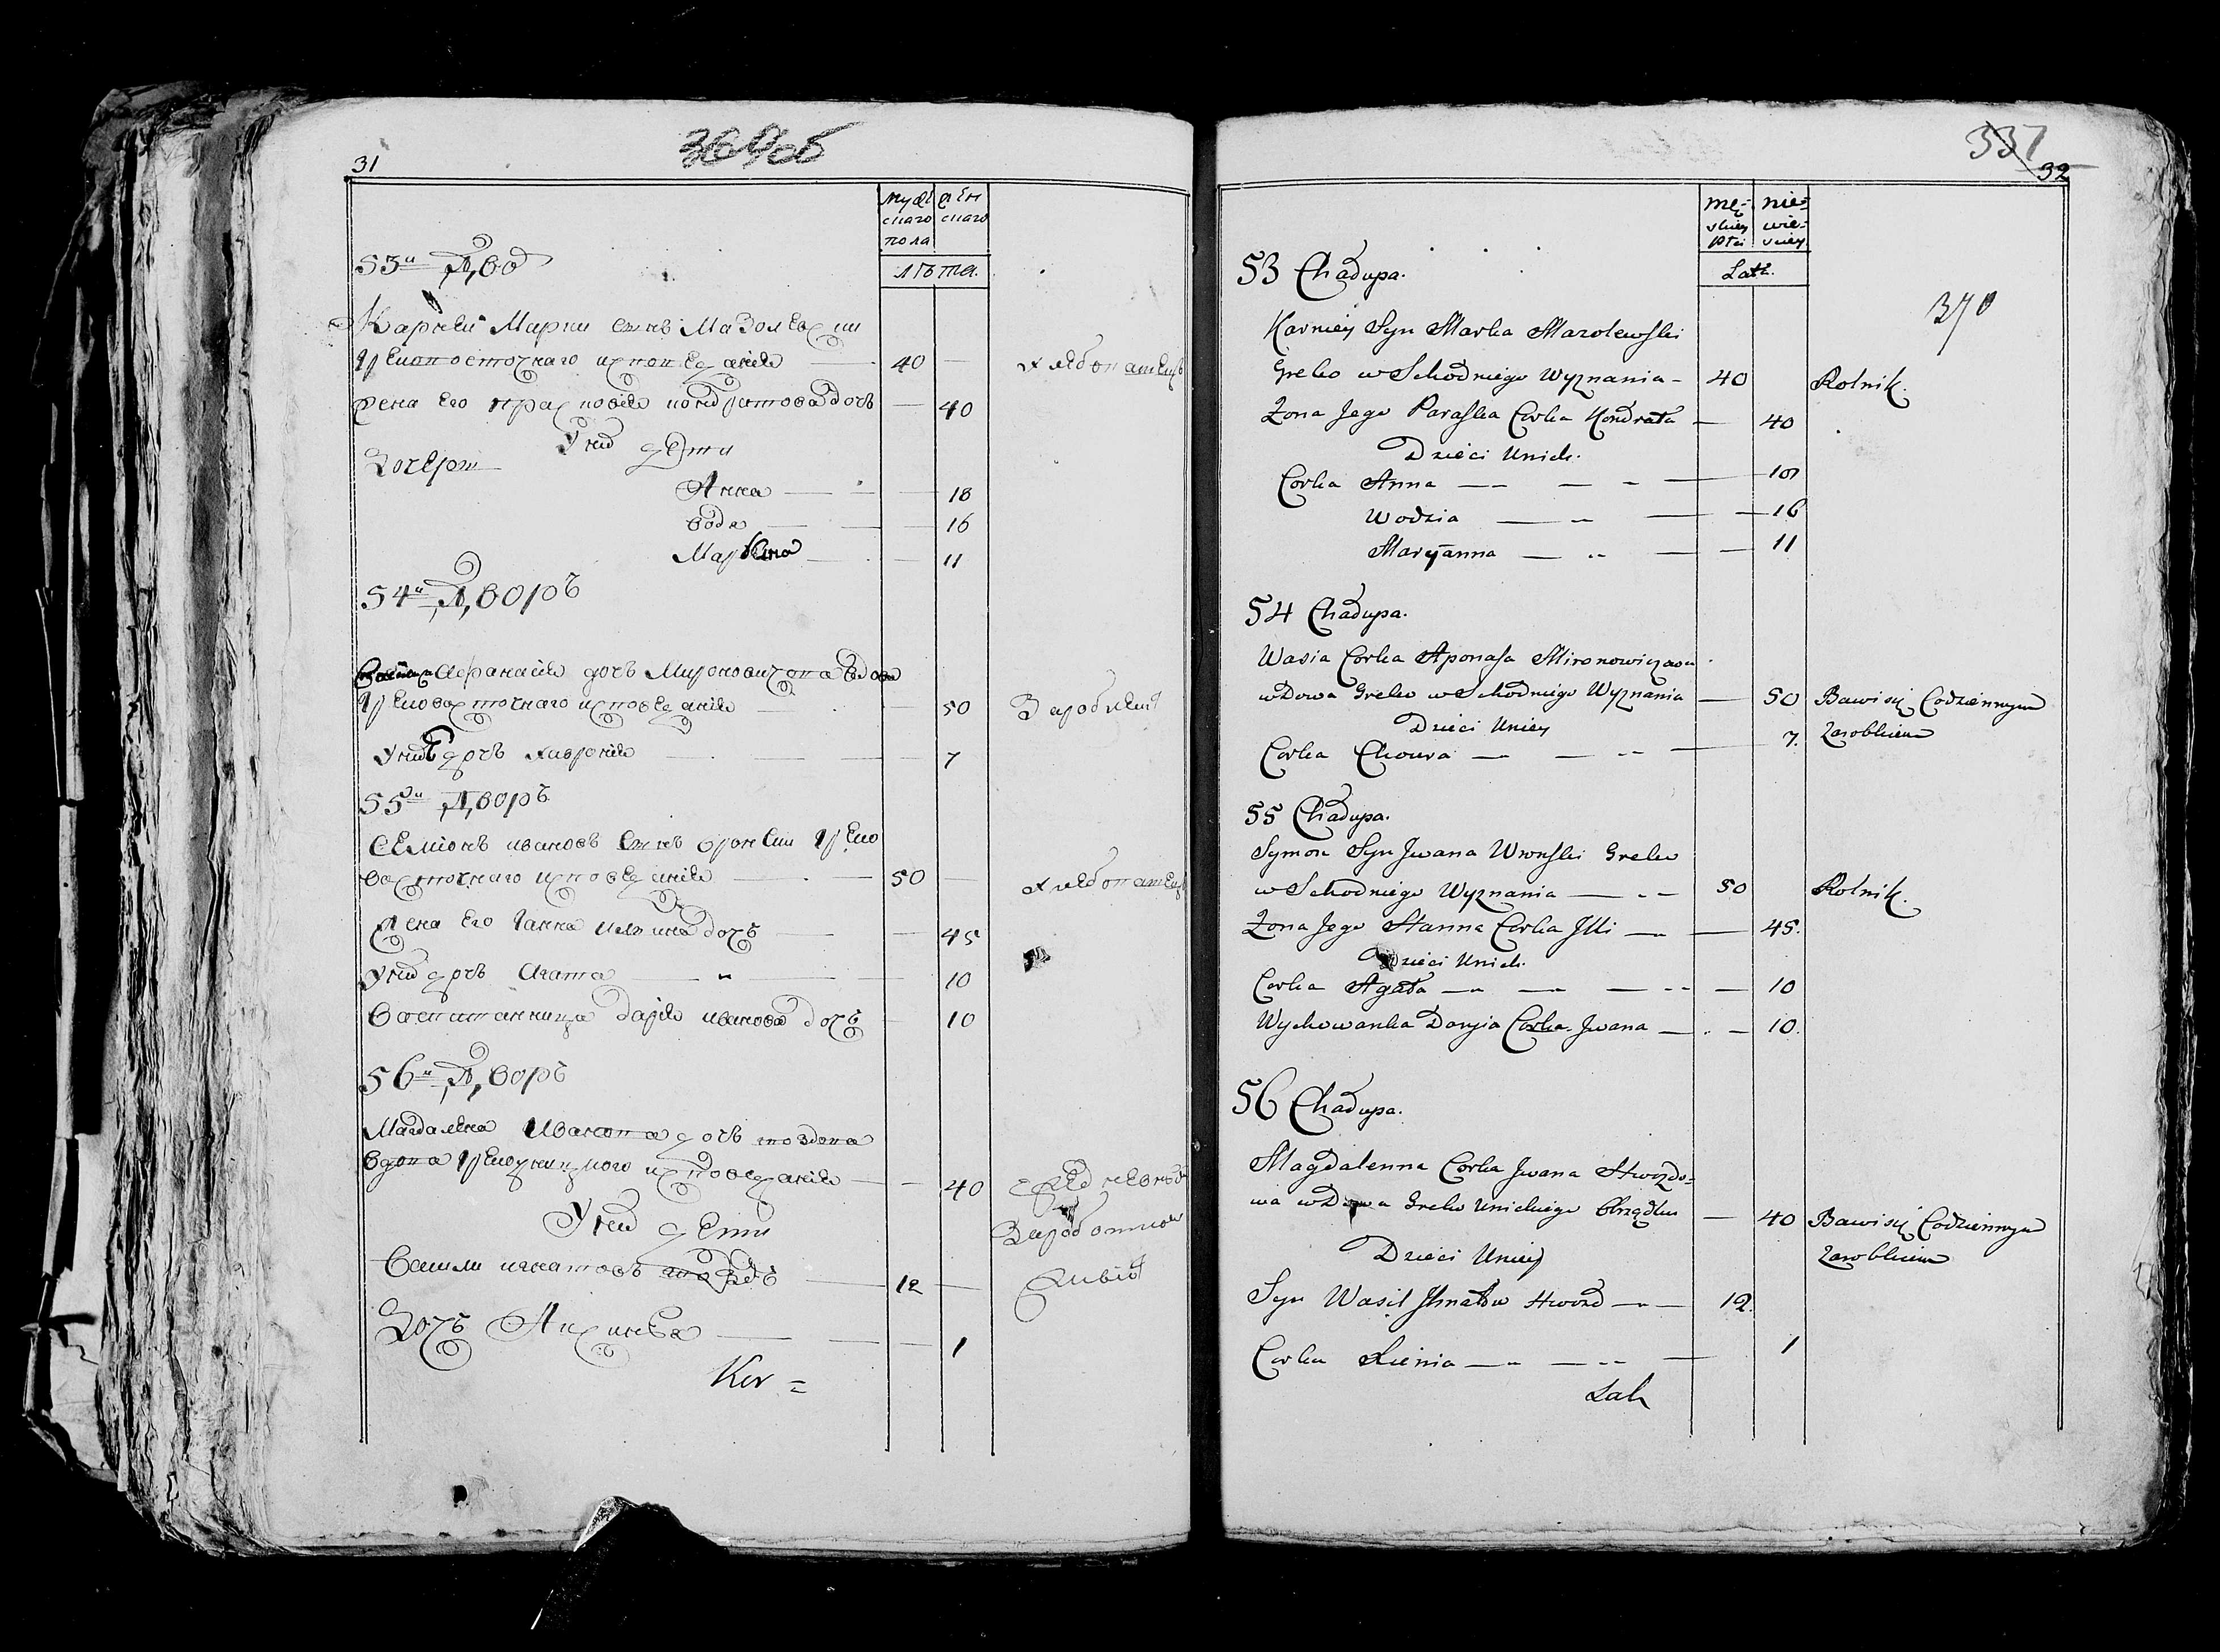 31
мужескаго пола
женскаго
лѣта.
53й Двор
Карней Марки сынъ Мазолевски
Грековосточнаго исповеданія — 40 — хлебопашець
жена его Прасковія Кондратова дочь — 40
У ней дети
Дочери
Анна — 18
Водя — 16
11
54й Дворъ
Афанасія дочь Мироновичова вдова
Грековосточнаго исповеданія — 50
У ней дочь Хивронія — 7
55й Дворъ
Семіонъ ивановъ сынъ Вронски Греко
восточнаго исповеданія — 50 — хлебопашець
жена его Ганна илина дочь — 45
У ней дочь Агата — 10
Воспитанница Дарія иванова дочь — 10
56й Дворъ
Магдалена Иванова дочь гвоздова
вдова Грекоуницкого исповеданія — 40
У ней дети
Васили игнатовъ гвоздъ — 12
Дочь — 1
337
32
męskiey płci
niewieskiey
Lata.
370
53 Chałupa.
Karniey Syn Marka Mazolewski
Greko wSchodniego Wyznania - 40 Rolnik.
Zona Jego Paraska Corka Kondrata — 40
Dzieci Unich.
Corka Anna — 18
Wodzia — 16
Maryanna — 11
54 Chałupa.
Wasia Corka Aponasa Mironowiczowa
wdowa Greko wSchodniego Wyznania — 50 Bawi się Codziennym
Dzieci Uniey Zarobkiem
Corka Chowra — 7.
55 Chałupa.
Symon Syn Jwana Wronski Greko
wSchodniego Wyznania — 50 Rolnik.
Zona Jego Hanna Corka Jlli — 45.
Dzieci Unich.
Corka Agata — 10
Wychowanka Daryia Corka Jwana — 10.
56 Chałupa.
Magdalenna Corka Jwana Hwozdo=
wa wdowa Greko Unickiego Obrządku — 40 Bawi się Codziennym
Dzieci Uniey Zarobkiem
Syn Wasil Jhnatów Hwozd — 12.
Corka Xienia — 1